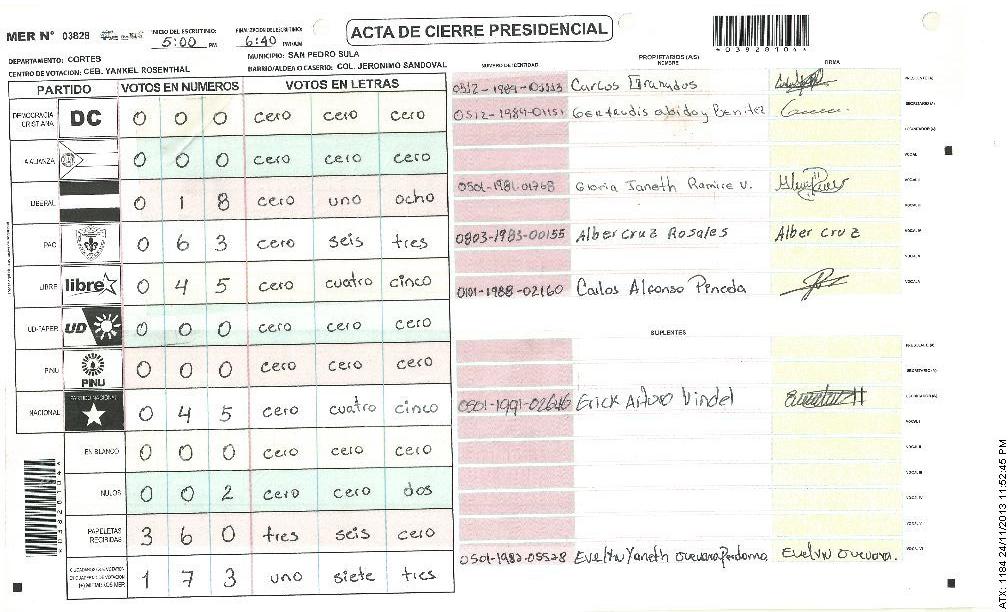 MER N° 03828
INICIO DEL ESCRUTINIO: 5:00 PM
FINALIZACION DEL ESCRUTINIO: 6:40 PM/AM
ACTA DE CIERRE PRESIDENCIAL
DEPARTAMENTO: CORTES
MUNICIPIO: SAN PEDRO SULA
CENTRO DE VOTACION: CEB. YANKEL ROSENTHAL
BARRIO/ALDEA O CASERIO: COL. JERONIMO SANDOVAL
PARTIDO VOTOS EN NUMEROS VOTOS EN LETRAS
DEMOCRACIA CRISTIANA DC 0 0 0 cero cero cero
ALIANZA 0 0 0 cero cero cero
LIBERAL 0 1 8 cero uno ocho
PAC 0 6 3 cero seis tres
LIBRE libre 0 4 5 cero cuatro cinco
UD-FAPER UD 0 0 0 cero cero cero
PINU PINU 0 0 0 cero cero cero
NACIONAL PARTIDO NACIONAL 0 4 5 cero cuatro cinco
EN BLANCO 0 0 0 cero cero cero
NULOS 0 0 2 cero cero dos
PAPELETAS RECIBIDAS 3 6 0 tres seis cero
1 7 3 uno siete tres
NUMERO DE IDENTIDAD PROPIETARIOS (AS) NOMBRE FIRMA
Carlos Granados PRESIDENTE (A)
0512-1984-01151 Gertrudis abidoy Benitez SECRETARIO (A)
ESCRUTADOR (A)
VOCAL I
0501-1981-01768 Gloria Janeth Ramirez V.
0803-1983-00155 Alber Cruz Rosales Alber Cruz
0101-1988-02160 Carlos Alfonso Pineda
SUPLENTES
PRESIDENTE (A)
SECRETARIO (A)
0501-1991-02646 Erick Arturo Vindel ESCRUTADOR (A)
VOCAL I
VOCAL II
VOCAL III
VOCAL IV
VOCAL V
0501-1982-05528 Evelyn Yaneth Guevara Perdomo Evelyn Guevara. VOCAL VI
ATX: 1184 24/11/2013 11:52:45 PM